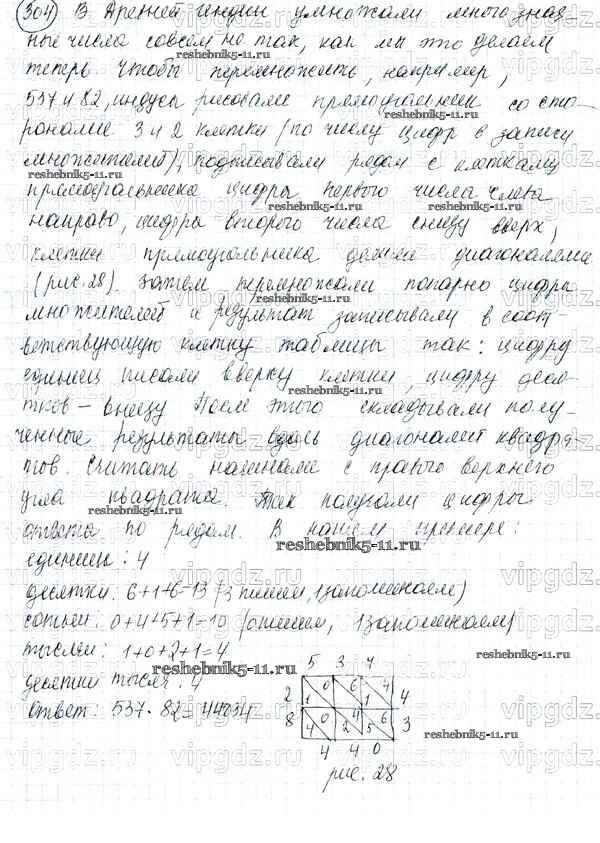 304 В Древней Индии умножали многознач-
ные числа совсем не так, как мы это делаем
теперь чтобы перемножить, например,
537 и 82, индусы рисовали прямоугольник со сто-
ронами 3 и 2 клетки (по числу цифр в записи
множителей), подписывали рядом с клетками
прямоугольника цифры первого числа слева
направо, цифры второго числа снизу вверх,
клетки прямоугольника делили диагоналями
(рис. 28). Затем перемножали попарно цифры
множителей и результат записывали в соот-
ветствующую клетку таблицы так: цифру
единиц писали вверху клетки, цифру деся-
тков - внизу После этого складывали полу-
ченные результаты вдоль диагоналей квадра-
тов. Считать начинали с правого верхнего
угла квадрата. Так получали цифры
ответа по рядам. В нашем примере:
единицы: 4
десятки: 6+1+6=13 (3 пишем, 1 запоминаем)
сотни: 0+4+5+1=10 (0 пишем, 1 запоминаем)
тысячи: 1+0+2+1=4
десятки тысяч: 4
ответ: 537·82=44034
5 3 7
2 1 0 6 1 4 4
8 4 0 2 4 5 6 3
4 4 0
рис. 28
reshebnik5-11.ru
vipgdz.com